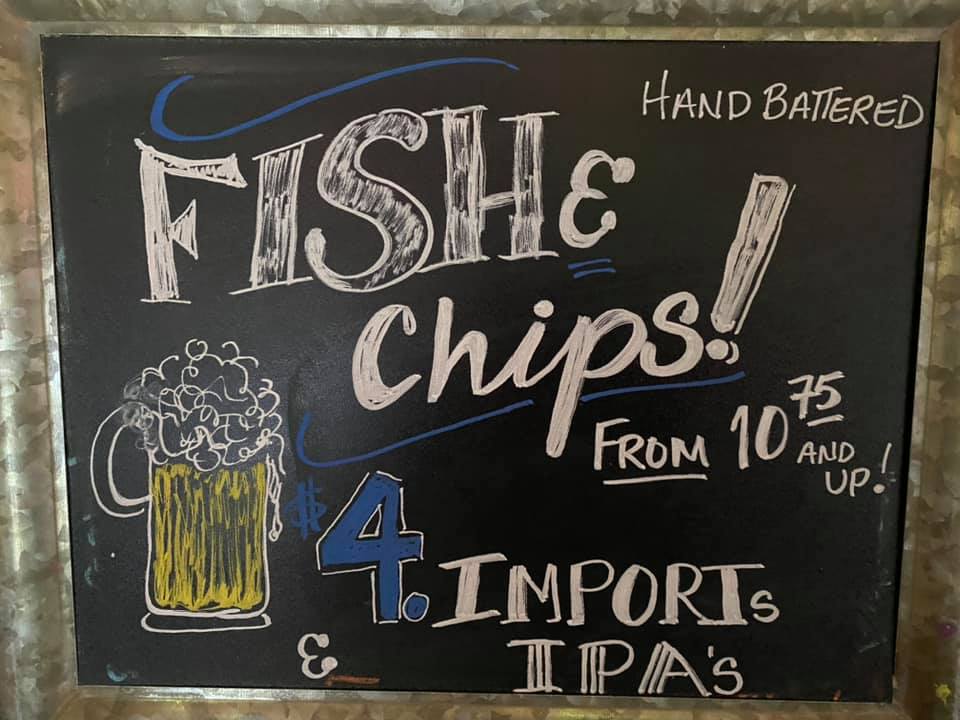 HAND BATTERED
FISH &
Chips!
FROM 10 75 AND UP!
$4. IMPORTS
& IPA's